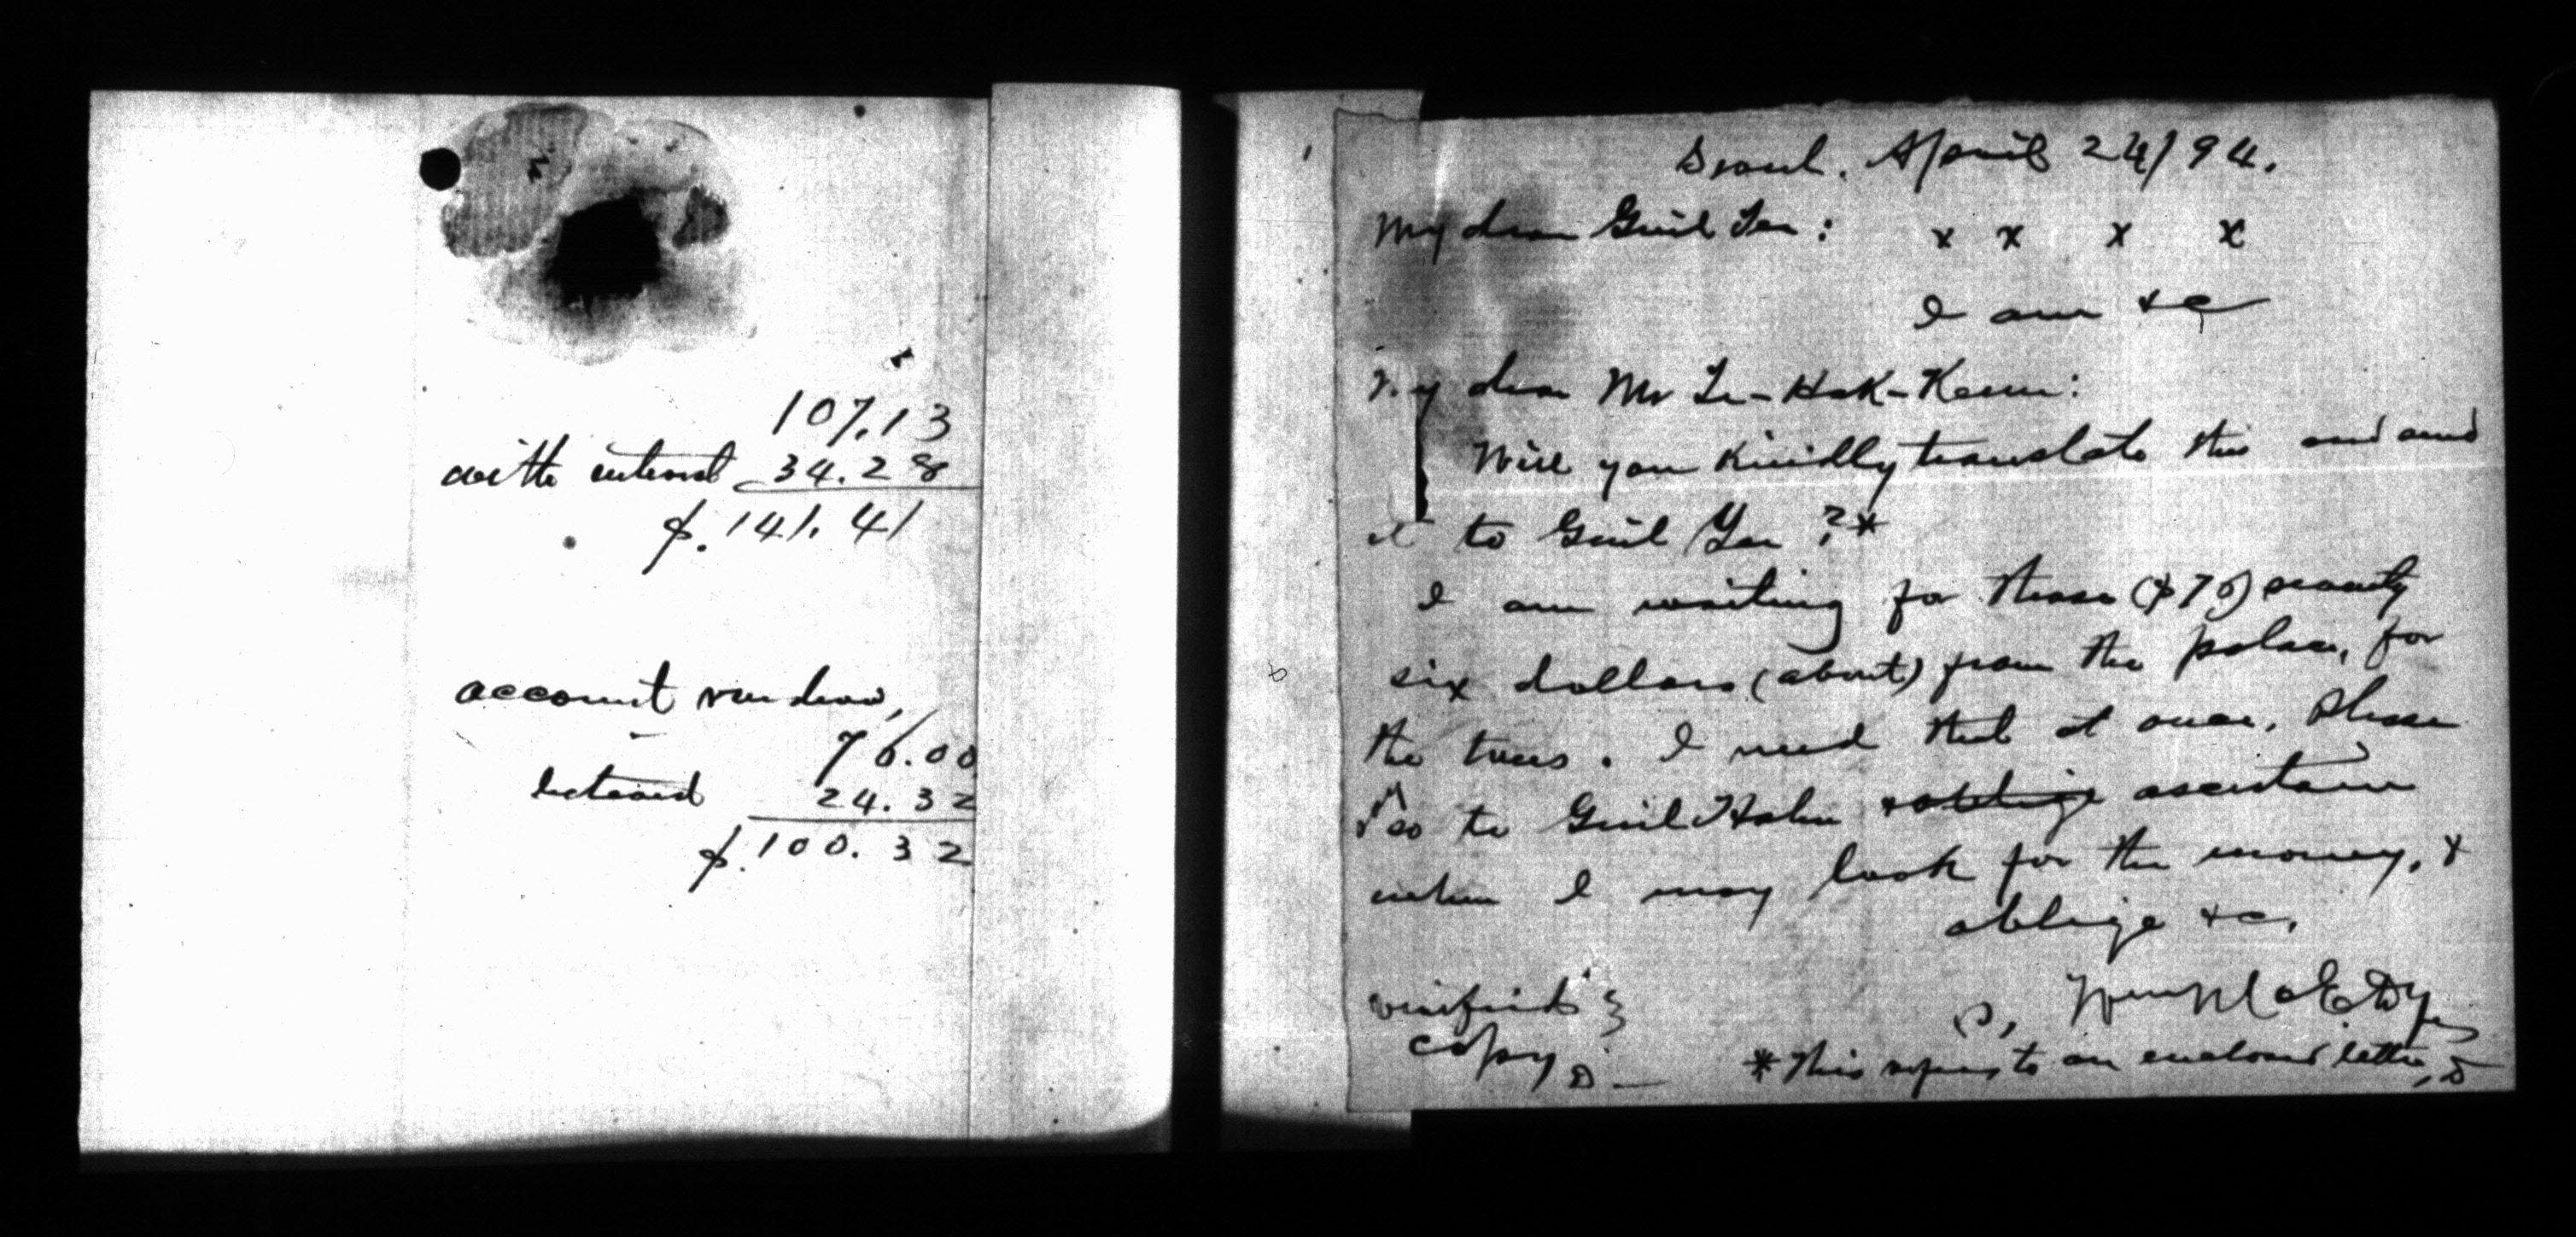 107.13
with interest 34.28
$.141.41
account rendered,
76.00
interest 24.32
$.100.32
Seoul. April 24/94.
My dear Genl Yee: x x x x
I am &c
My dear Mr Ye-Hak-Keun:
Will you kindly translate this and send
it to Genl Yee?*
I am waiting for those ($76) seventy
six dollars (about) from the palace, for
the trees. I need that at once. Please
go to Genl Hahn & oblige ascertain
when I may look for the money, &
oblige &c.
Wm McE Dye
copy D.
*This refers to an enclosed letter, D